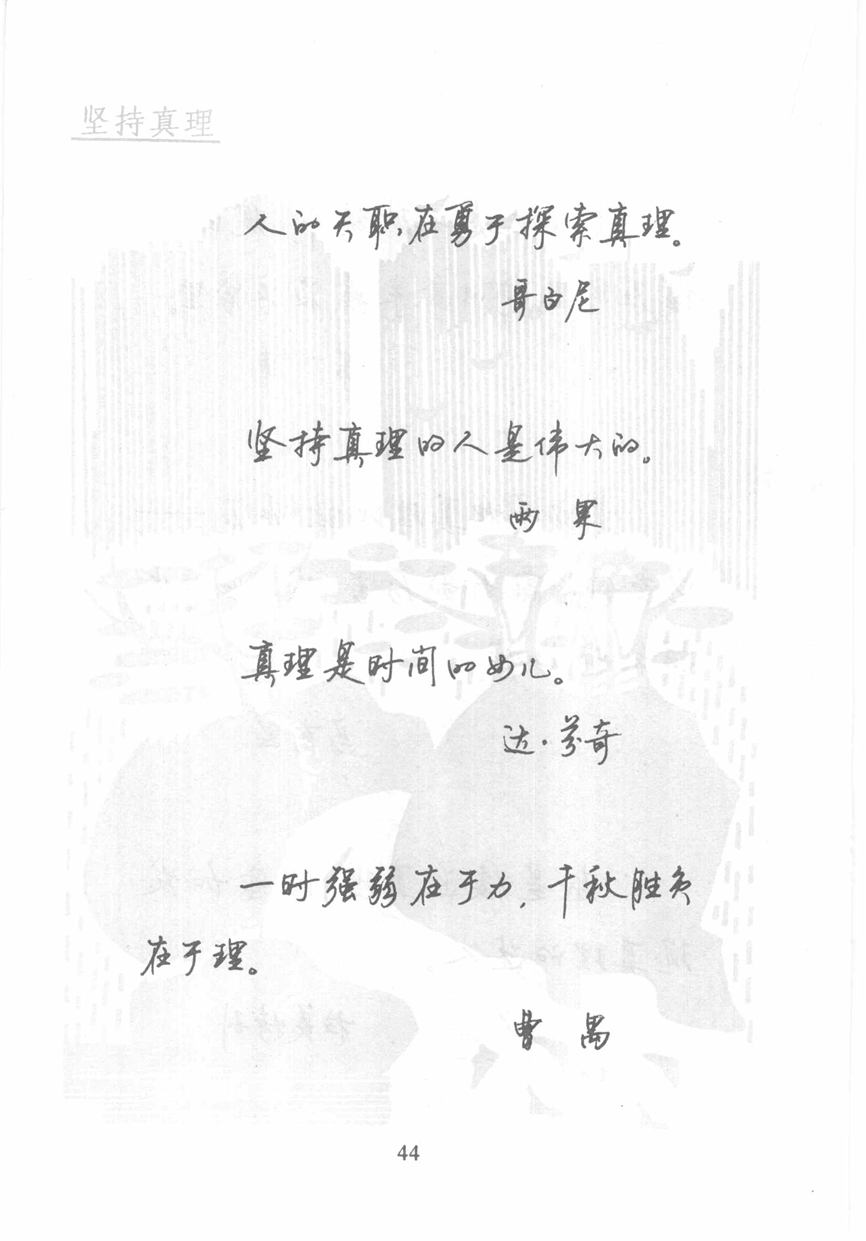 坚持真理
人的天职在勇于探索真理。
哥白尼
坚持真理的人是伟大的。
雨果
真理是时间的女儿。
达·芬奇
一时强弱在于力，千秋胜负
在于理。
曹禺
44